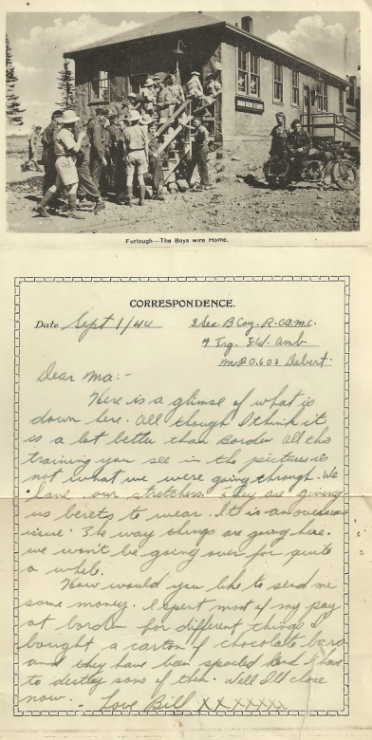 Furlough—The Boys wire Home.
CORRESPONDENCE.
Date Sept 1/44 2 Sec B Coy. R.C.A.M.C.
Trg. Fld. Amb
M.P.O. 603 Debert.
Dear Ma:-
Here is a glimse of what is
down here. All though I think it
is a lot better than Borden all tho
training you see in the picture is
not what we were going through. We
have our stretchers. They are giving
us berets to wear. It is an overseas
issue. The way things are going here.
we won't be going over for quite
a while.
How would you like to send me
some money. I spent most of my pay
at borden for different things I
bought a carton of chocolate bars
and they have ben spoiled and I have
to destroy some of them. Well I'll close
now. - Love Bill XXXXXXX